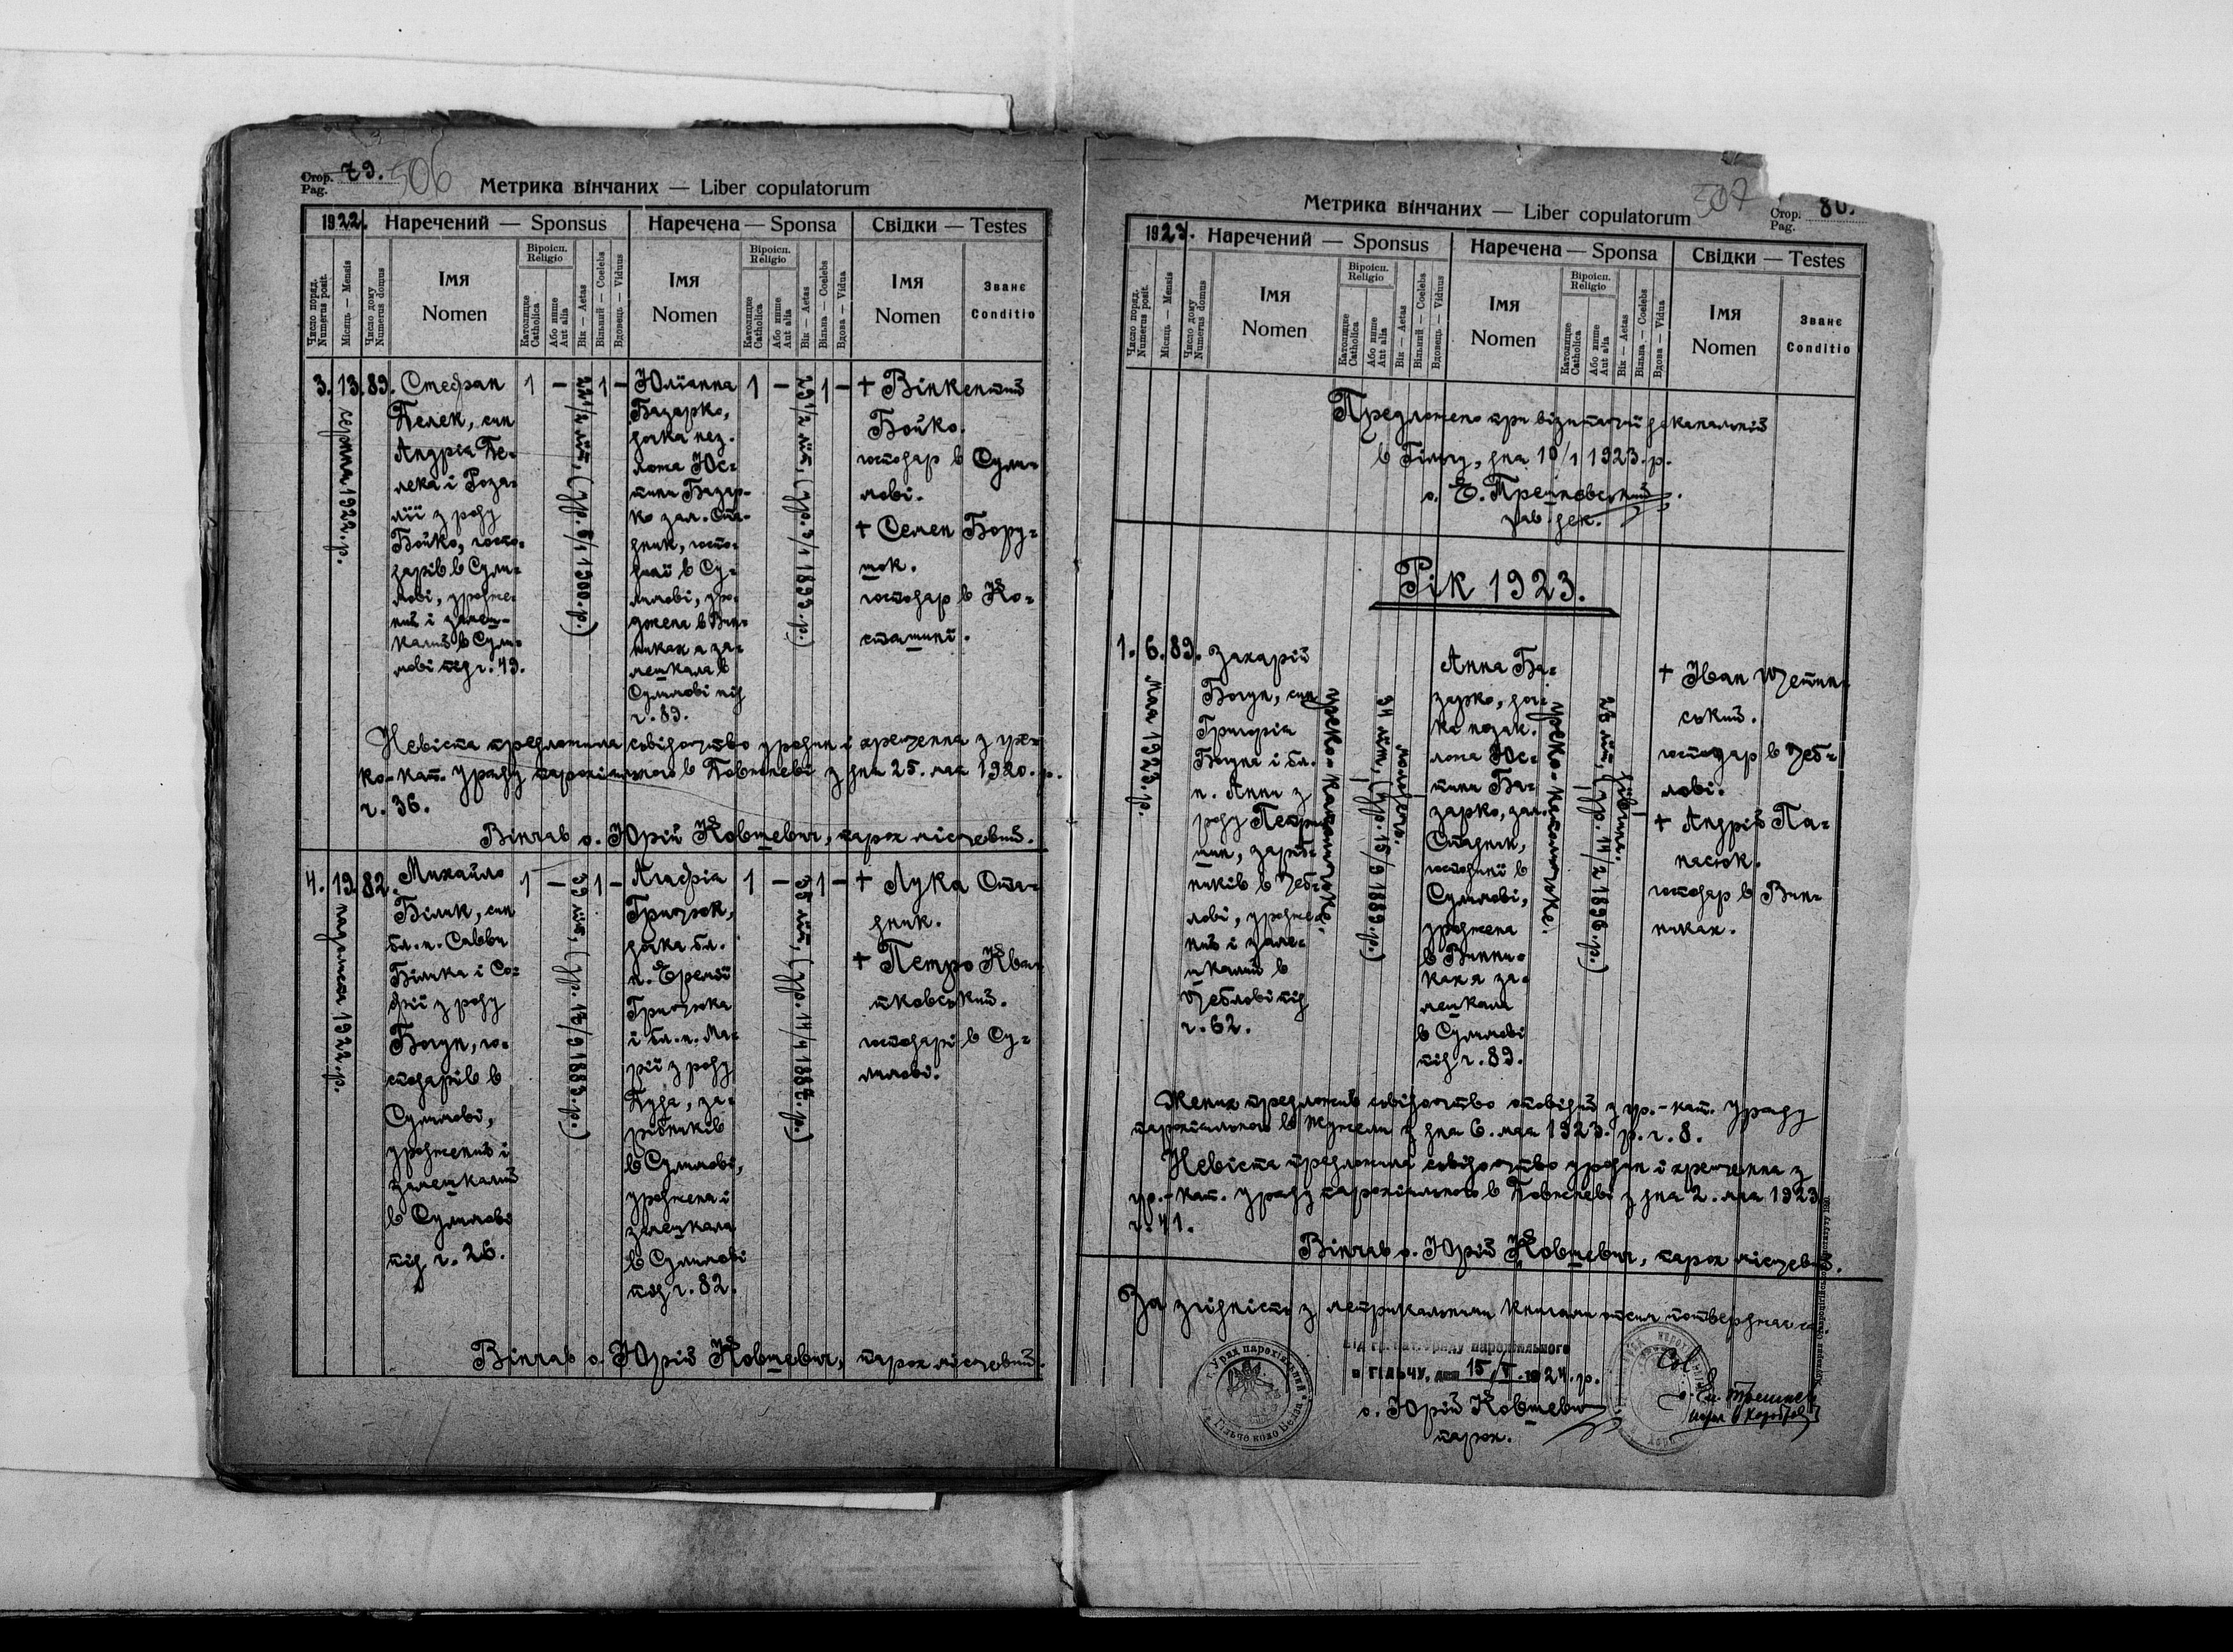 Стор. 79. 506
Pag.
Метрика вінчаних — Liber copulatorum
1922. Наречений — Sponsus Наречена — Sponsa Свідки — Testes
Число поряд. Numerus posit.
Місяць — Mensis
Число дому Numerus domus
Імя Nomen
Віроісп. Religio
Католицке Catholica
Або инше Aut alia
Вік — Aetas
Вільний — Coelebs
Вдовець — Viduus
Імя Nomen
Віроісп. Religio
Католицке Catholica
Або инше Aut alia
Вік — Aetas
Вільна — Coelebs
Вдова — Vidua
Імя Nomen
Званє Conditio
3. 13. 89.
серпня 1922. р.
Стефан
Пелек, син
Андрія Пе-
лека і Роза-
лії з роду
Бойко, госпо-
дарів в Сули-
мові, уродже-
ний і замеш-
калий в Сули-
мові під ч. 49.
1 — 22 1/2 літ, (ур. 8/1 1900. р.) 1 —
Юліанна
Базарко,
дочка нез.
лота Юс-
тини Базар-
ко зам. Ста-
дник, госпо-
дині в Су-
лимові, уро-
джена в Вин-
никах а за-
мешкала в
Сулимові під
ч. 89.
1 — 29 1/2 літ, (ур. 7/1 1893. р.) 1 —
+ Вінкентий
Бойко.
господар в Сули-
мові.
+ Семен Бору-
шок.
господар в Ко-
сташині.
Невіста предложила свідоцтво уродин і хрещення з гре-
ко-кат. уряду парохіяльного в Жовтневі з дня 25. мая 1920. р.
ч. 36.
Вінчав о. Юрій Ковшевич, парох місцевий.
4. 19. 82.
падолиста 1922. р.
Михайло
Білик, син
бл. п. Савви
Білика і Со-
фії з роду
Богун, го-
сподарів в
Сулимові,
уроджений і
замешкалий
в Сулимові
під ч. 26.
1 — 39 літ, 1 —
Агафія
Грицюк,
дочка бл.
п. Єремії
Грицюка
і бл. п. Ма-
рії з роду
Куца, за-
рібників
в Сулимові,
уроджена і
замешкала
в Сулимові
під ч. 82.
1 — 35 літ, 1 —
+ Лука Ста-
дник.
+ Петро Ква-
тковський.
господарі в Су-
лимові.
Вінчав о. Юрій Ковшевич, парох місцевий.
507 Стор. 80.
Pag.
Метрика вінчаних — Liber copulatorum
1923. Наречений — Sponsus Наречена — Sponsa Свідки — Testes
Число поряд. Numerus posit.
Місяць — Mensis
Число дому Numerus domus
Імя Nomen
Віроісп. Religio
Католицке Catholica
Або инше Aut alia
Вік — Aetas
Вільний — Coelebs
Вдовець — Viduus
Імя Nomen
Віроісп. Religio
Католицке Catholica
Або инше Aut alia
Вік — Aetas
Вільна — Coelebs
Вдова — Vidua
Імя Nomen
Званє Conditio
Предложено при візитації деканальній
в Гільчу, дня 10/1 1923. р.
о. Е.
зав. дек.
Рік 1923.
1. 6. 89.
мая 1923. р.
Захарій
Богун, син
Григорія
Богуна і бл.
п. Анни з
роду Петри-
шин, заріб-
ників в Жеб-
лові, уродже-
ний і заме-
шкалий в
Жеблові під
ч. 62.
греко-католицке.
34 літ, (ур. 15/9 1889. р.)
молодець.
Анна Ба-
зарко, доч-
ка незак.
лота Юс-
тини Ба-
зарко, зам.
Стадник,
господині в
Сулимові,
уроджена
в Винни-
ках а за-
мешкала
в Сулимові
під ч. 89.
греко-католицке.
(ур. 14/2 1896. р.)
дівиця.
+ Іван
ський.
господар в Жеб-
лові.
+ Андрій Па-
насюк.
господар в Вин-
никах.
Жених предложив свідоцтво оповідий з гр.-кат. уряду
парохіяльного в Жужели з дня 6. мая 1923. р. ч. 8.
Невіста предложила свідоцтво уродин і хрещення з
гр.-кат. уряду парохіяльного в Жовтневі з дня 2. мая 1923.
ч. 41.
Вінчав о. Юрій Ковшевич, парох місцевий.
За згідність з метрикальними книгами отсим потверджається
Від гр. кат. Уряду парохіяльного
в ГІЛЬЧУ, дня 15/V. 1924. р.
о. Юрій Ковшевич
парох.